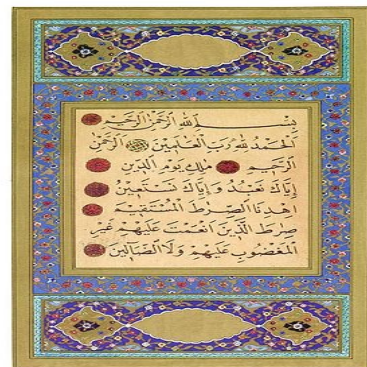 بِسْمِ اللهِ الرَّحْمٰنِ الرَّحِيمِ
اَلْحَمْدُ لِلّٰهِ رَبِّ الْعَالَمِينَ الرَّحْمٰنِ
الرَّحِيمِ مَالِكِ يَوْمِ الدِّينِ
إِيَّاكَ نَعْبُدُ وَإِيَّاكَ نَسْتَعِينُ
اِهْدِنَا الصِّرَاطَ الْمُسْتَقِيمَ
صِرَاطَ الَّذِينَ أَنْعَمْتَ عَلَيْهِمْ غَيْرِ
الْمَغْضُوبِ عَلَيْهِمْ وَلَا الضَّالِّينَ